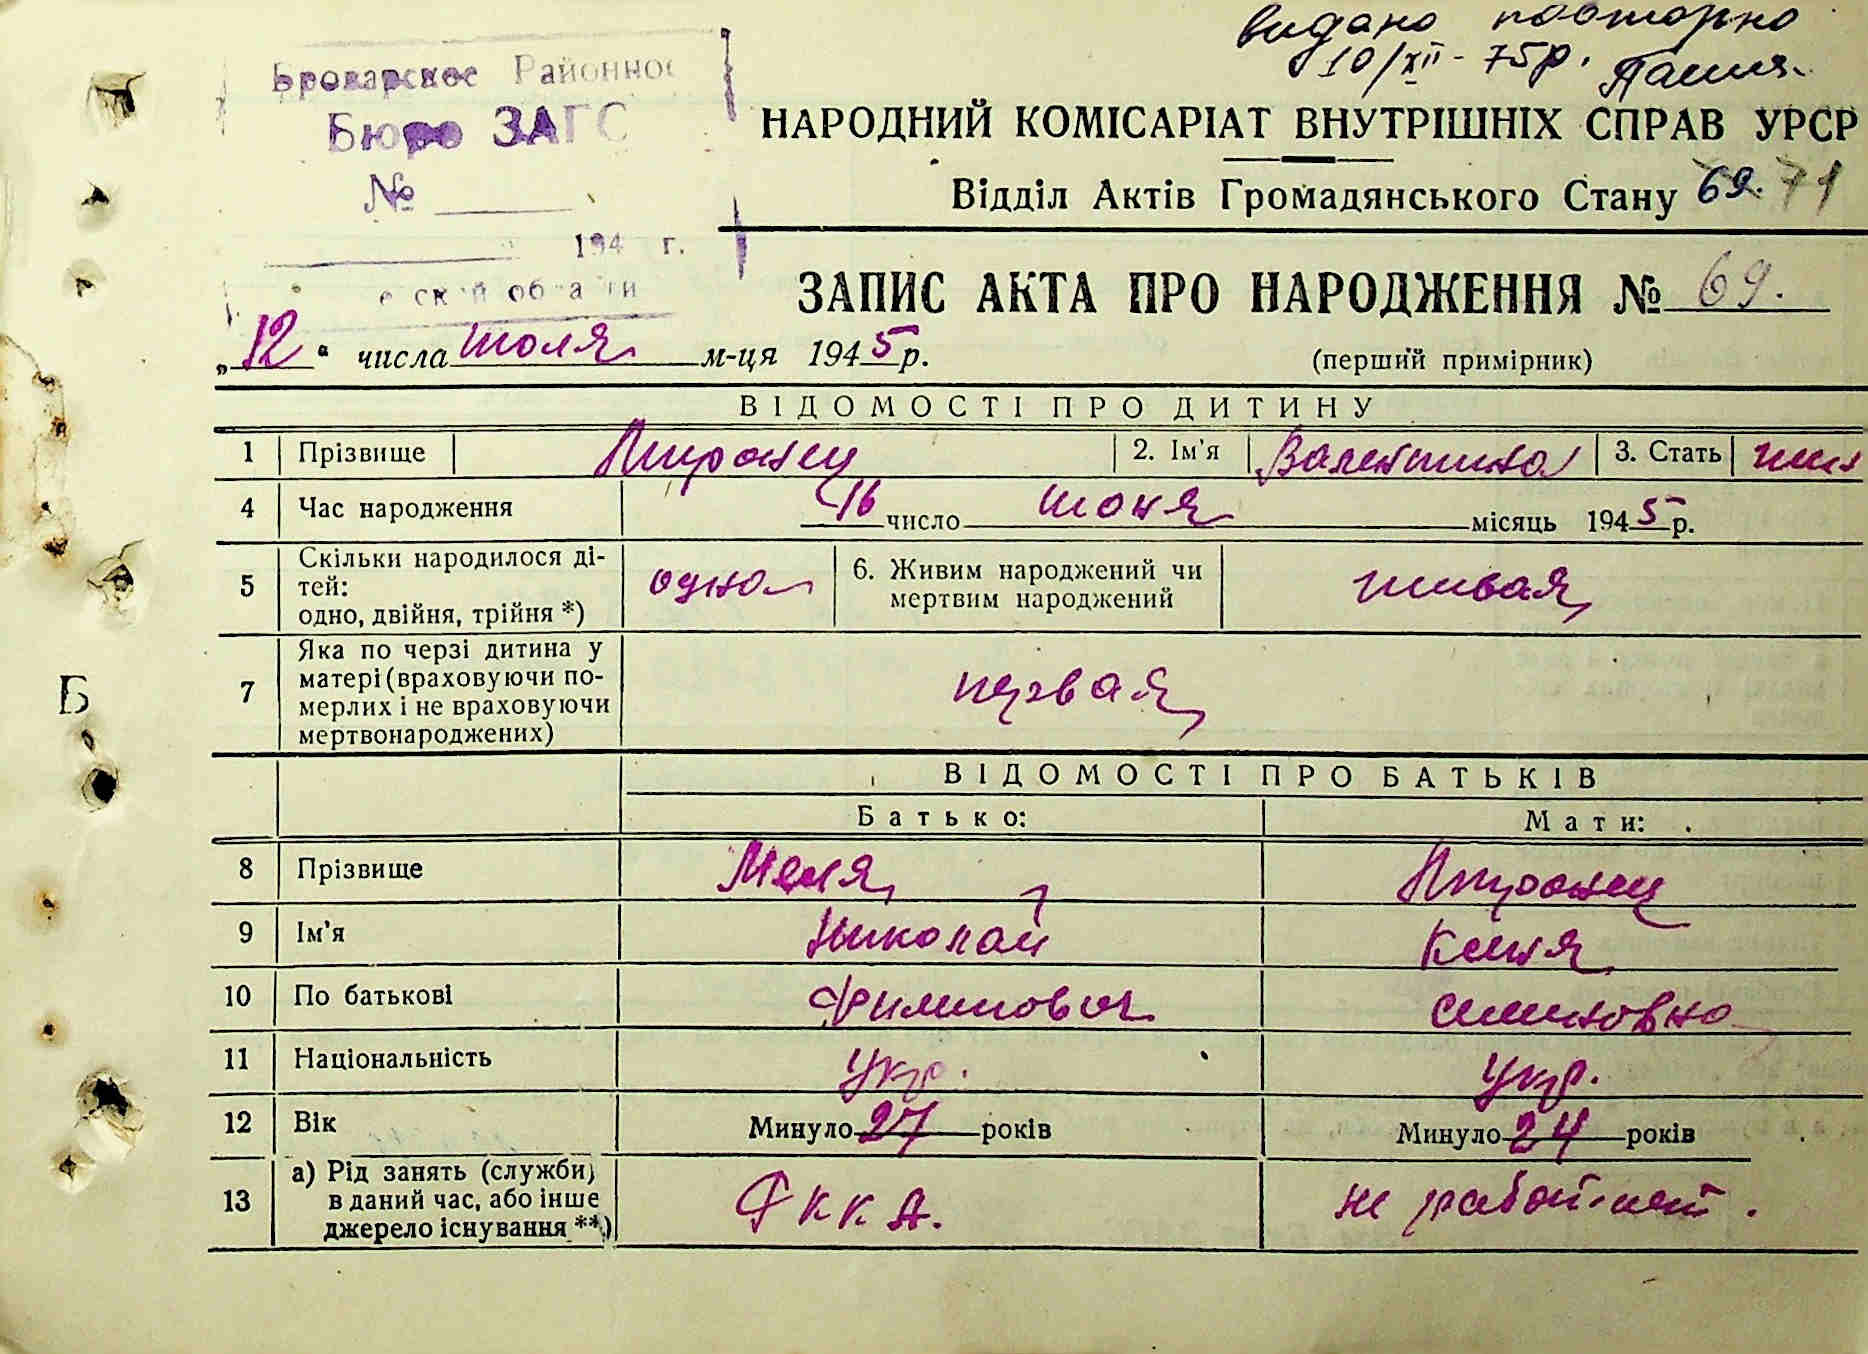 видано повторно
10/XII - 75р.
Броварское Районное
Бюро ЗАГС
№
194 г.
НАРОДНИЙ КОМІСАРІАТ ВНУТРІШНІХ СПРАВ УРСР
Відділ Актів Громадянського Стану 69. 71
ЗАПИС АКТА ПРО НАРОДЖЕННЯ № 69.
„12“ числа июля м-ця 1945 р.
(перший примірник)
ВІДОМОСТІ ПРО ДИТИНУ
1 Прізвище 2. Ім'я Валентина 3. Стать жен
4 Час народження 16 число июня місяць 1945 р.
5 Скільки народилося ді-
тей:
одно, двійня, трійня *) одна 6. Живим народжений чи
мертвим народжений живая
7 Яка по черзі дитина у
матері (враховуючи по-
мерлих і не враховуючи
мертвонароджених) первая
Б
ВІДОМОСТІ ПРО БАТЬКІВ
Батько: Мати:
8 Прізвище
9 Ім'я Николай Ксеня
10 По батькові Филипович Семеновна
11 Національність Укр. Укр.
12 Вік Минуло 27 років Минуло 24 років
13 а) Рід занять (служби)
в даний час, або інше
джерело існування **) РККА. не работает.